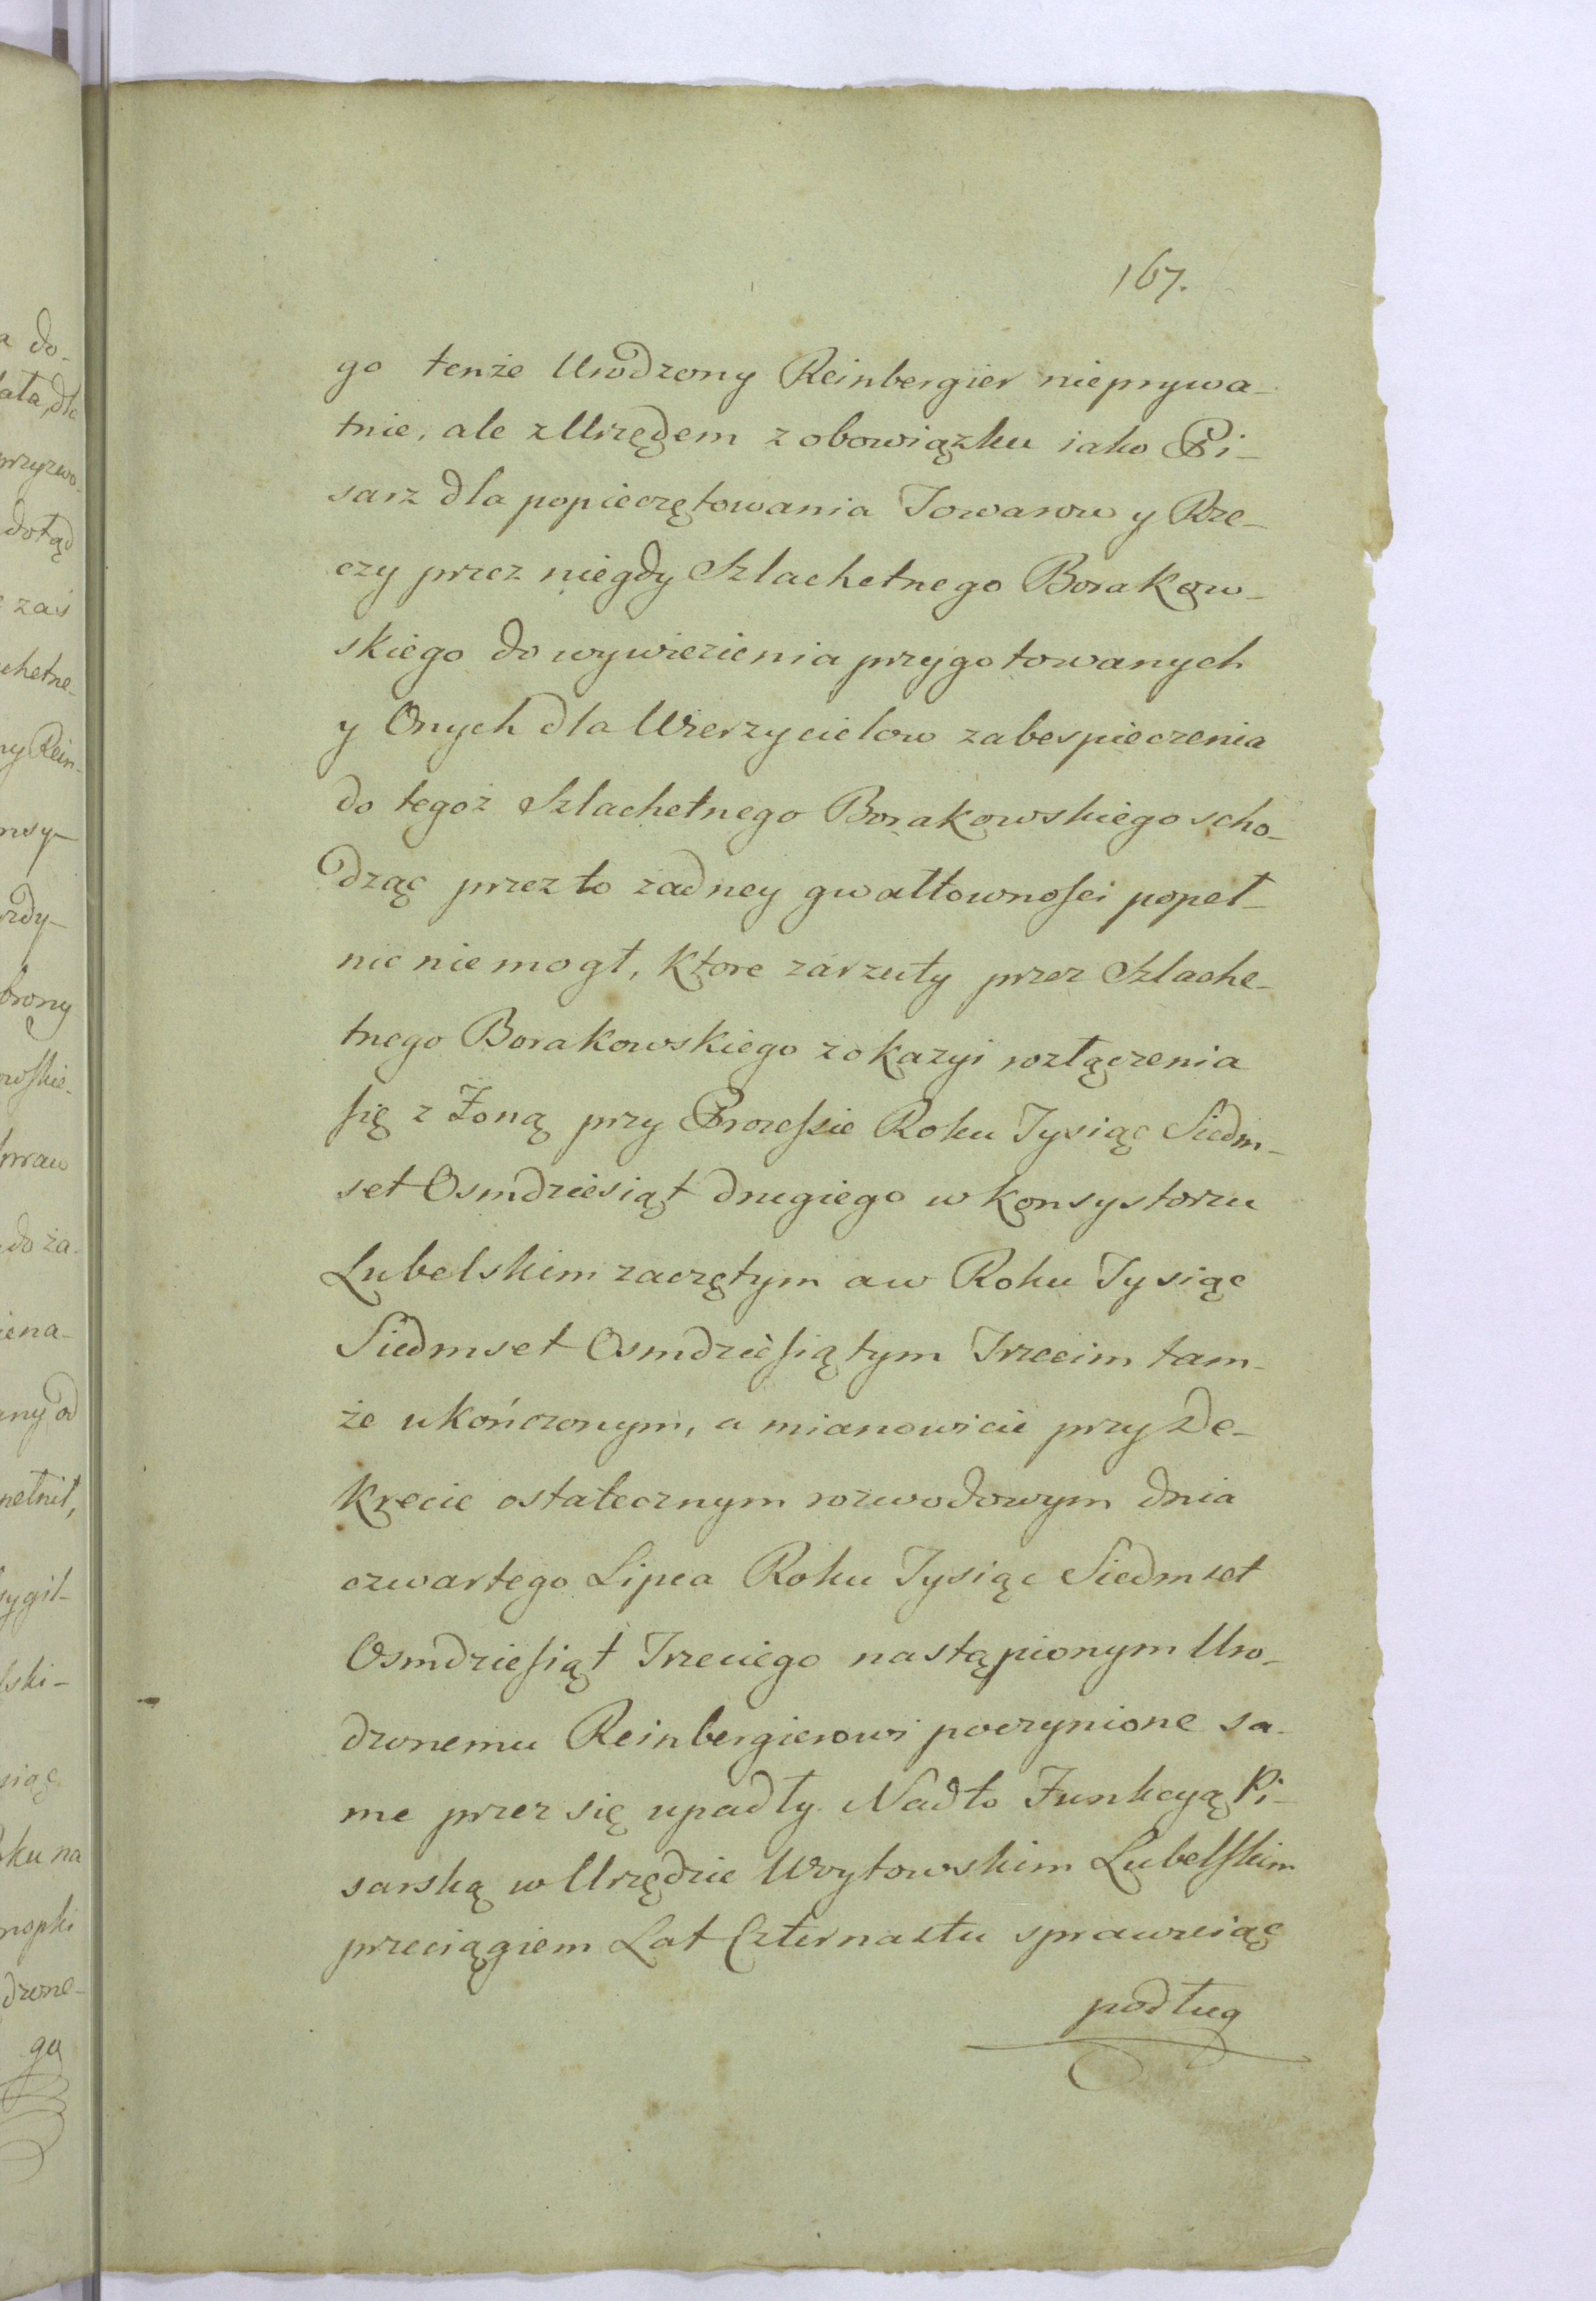 167.
go tenże Urodzony Reinbergier nieprywa-
tnie, ale z Urzędem z obowiązku iako Pi-
sarz dla popieczętowania Towarow y Rze-
czy przez niegdy Szlachetnego Borakow-
skiego do wywiezienia przygotowanych
y Onych dla Wierzycielow zabespieczenia
do tegoż Szlachetnego Borakowskiego scho-
dząc przez to żadney gwałtownosci popeł-
nic nie mogł, Ktore zarzuty przez Szlache-
tnego Borakowskiego z okazyi rozłączenia
się z Zoną przy Processie Roku Tysiąc Siedm-
set Osmdziesiąt drugiego w Konsystorzu
Lubelskim zaczętym a w Roku Tysiąc
Siedmset Osmdziesiątym Trzecim tam-
że ukończonym, a mianowicie przy De-
krecie ostatecznym rozwodowym dnia
czwartego Lipca Roku Tysiąc Siedmset
Osmdziesiąt Trzeciego nastąpionym Uro-
dzonemu Reinbergierowi poczynione sa-
me przez się upadły. Nadto Funkcyą Pi-
sarską w Urzędzie Woytowskim Lubelskim
przeciągiem Lat Czternastu sprawuiąc
podług
a do-
łata, dla
przyzwo-
dotąd
zaś
chetne-
ny Rein-
rdy-
brony
owskie-
praw
do ża-
iena-
any od
nełnił,
ski-
siąc
ku na
dzone-
go